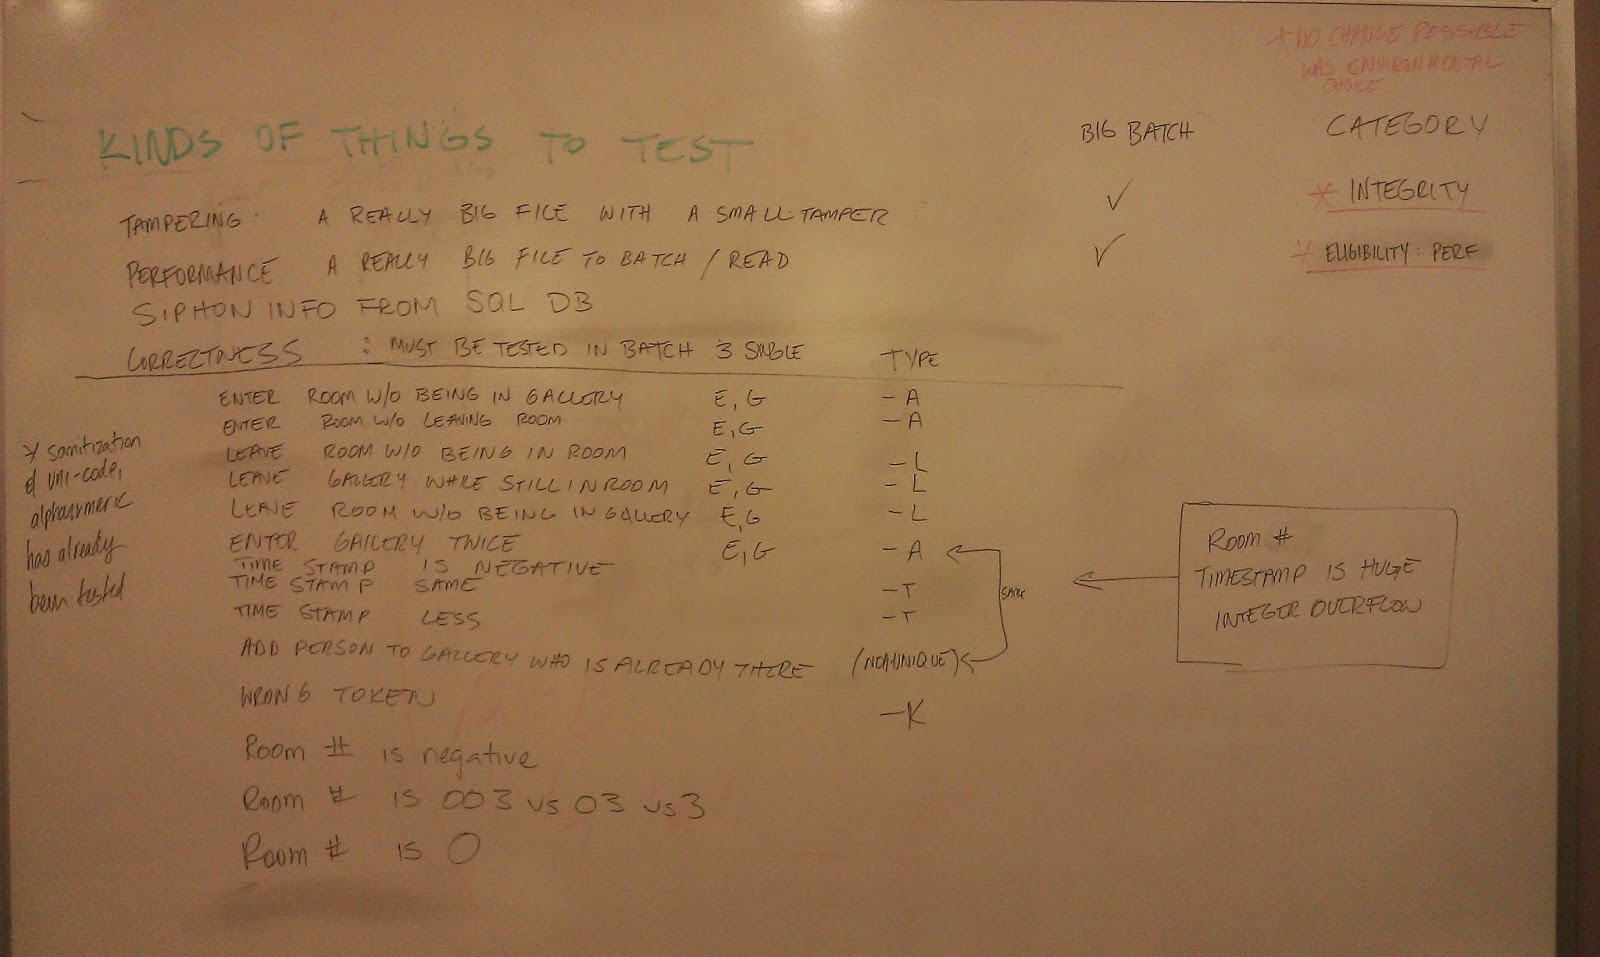 * NO CHANGE POSSIBLE
WAS ENVIRONMENTAL
CHOICE
KINDS OF THINGS TO TEST
BIG BATCH
CATEGORY
TAMPERING: A REALLY BIG FILE WITH A SMALL TAMPER ✓ * INTEGRITY
PERFORMANCE A REALLY BIG FILE TO BATCH / READ ✓ * ELIGIBILITY: PERF
SIPHON INFO FROM SQL DB
CORRECTNESS : MUST BE TESTED IN BATCH & SINGLE TYPE
ENTER ROOM W/O BEING IN GALLERY E, G - A
ENTER ROOM W/O LEAVING ROOM E, G - A
LEAVE ROOM W/O BEING IN ROOM E, G - L
LEAVE GALLERY WHILE STILL IN ROOM E, G - L
LEAVE ROOM W/O BEING IN GALLERY E, G - L
ENTER GALLERY TWICE E, G - A
TIME STAMP IS NEGATIVE
TIME STAMP SAME - T
TIME STAMP LESS - T
ADD PERSON TO GALLERY WHO IS ALREADY THERE (NON-UNIQUE)
WRONG TOKEN - K
Room # is negative
Room # is 003 vs 03 vs 3
Room # is 0
* sanitization
of uni-code,
alphanumeric
has already
been tested
SAME
Room #
TIMESTAMP IS HUGE
INTEGER OVERFLOW